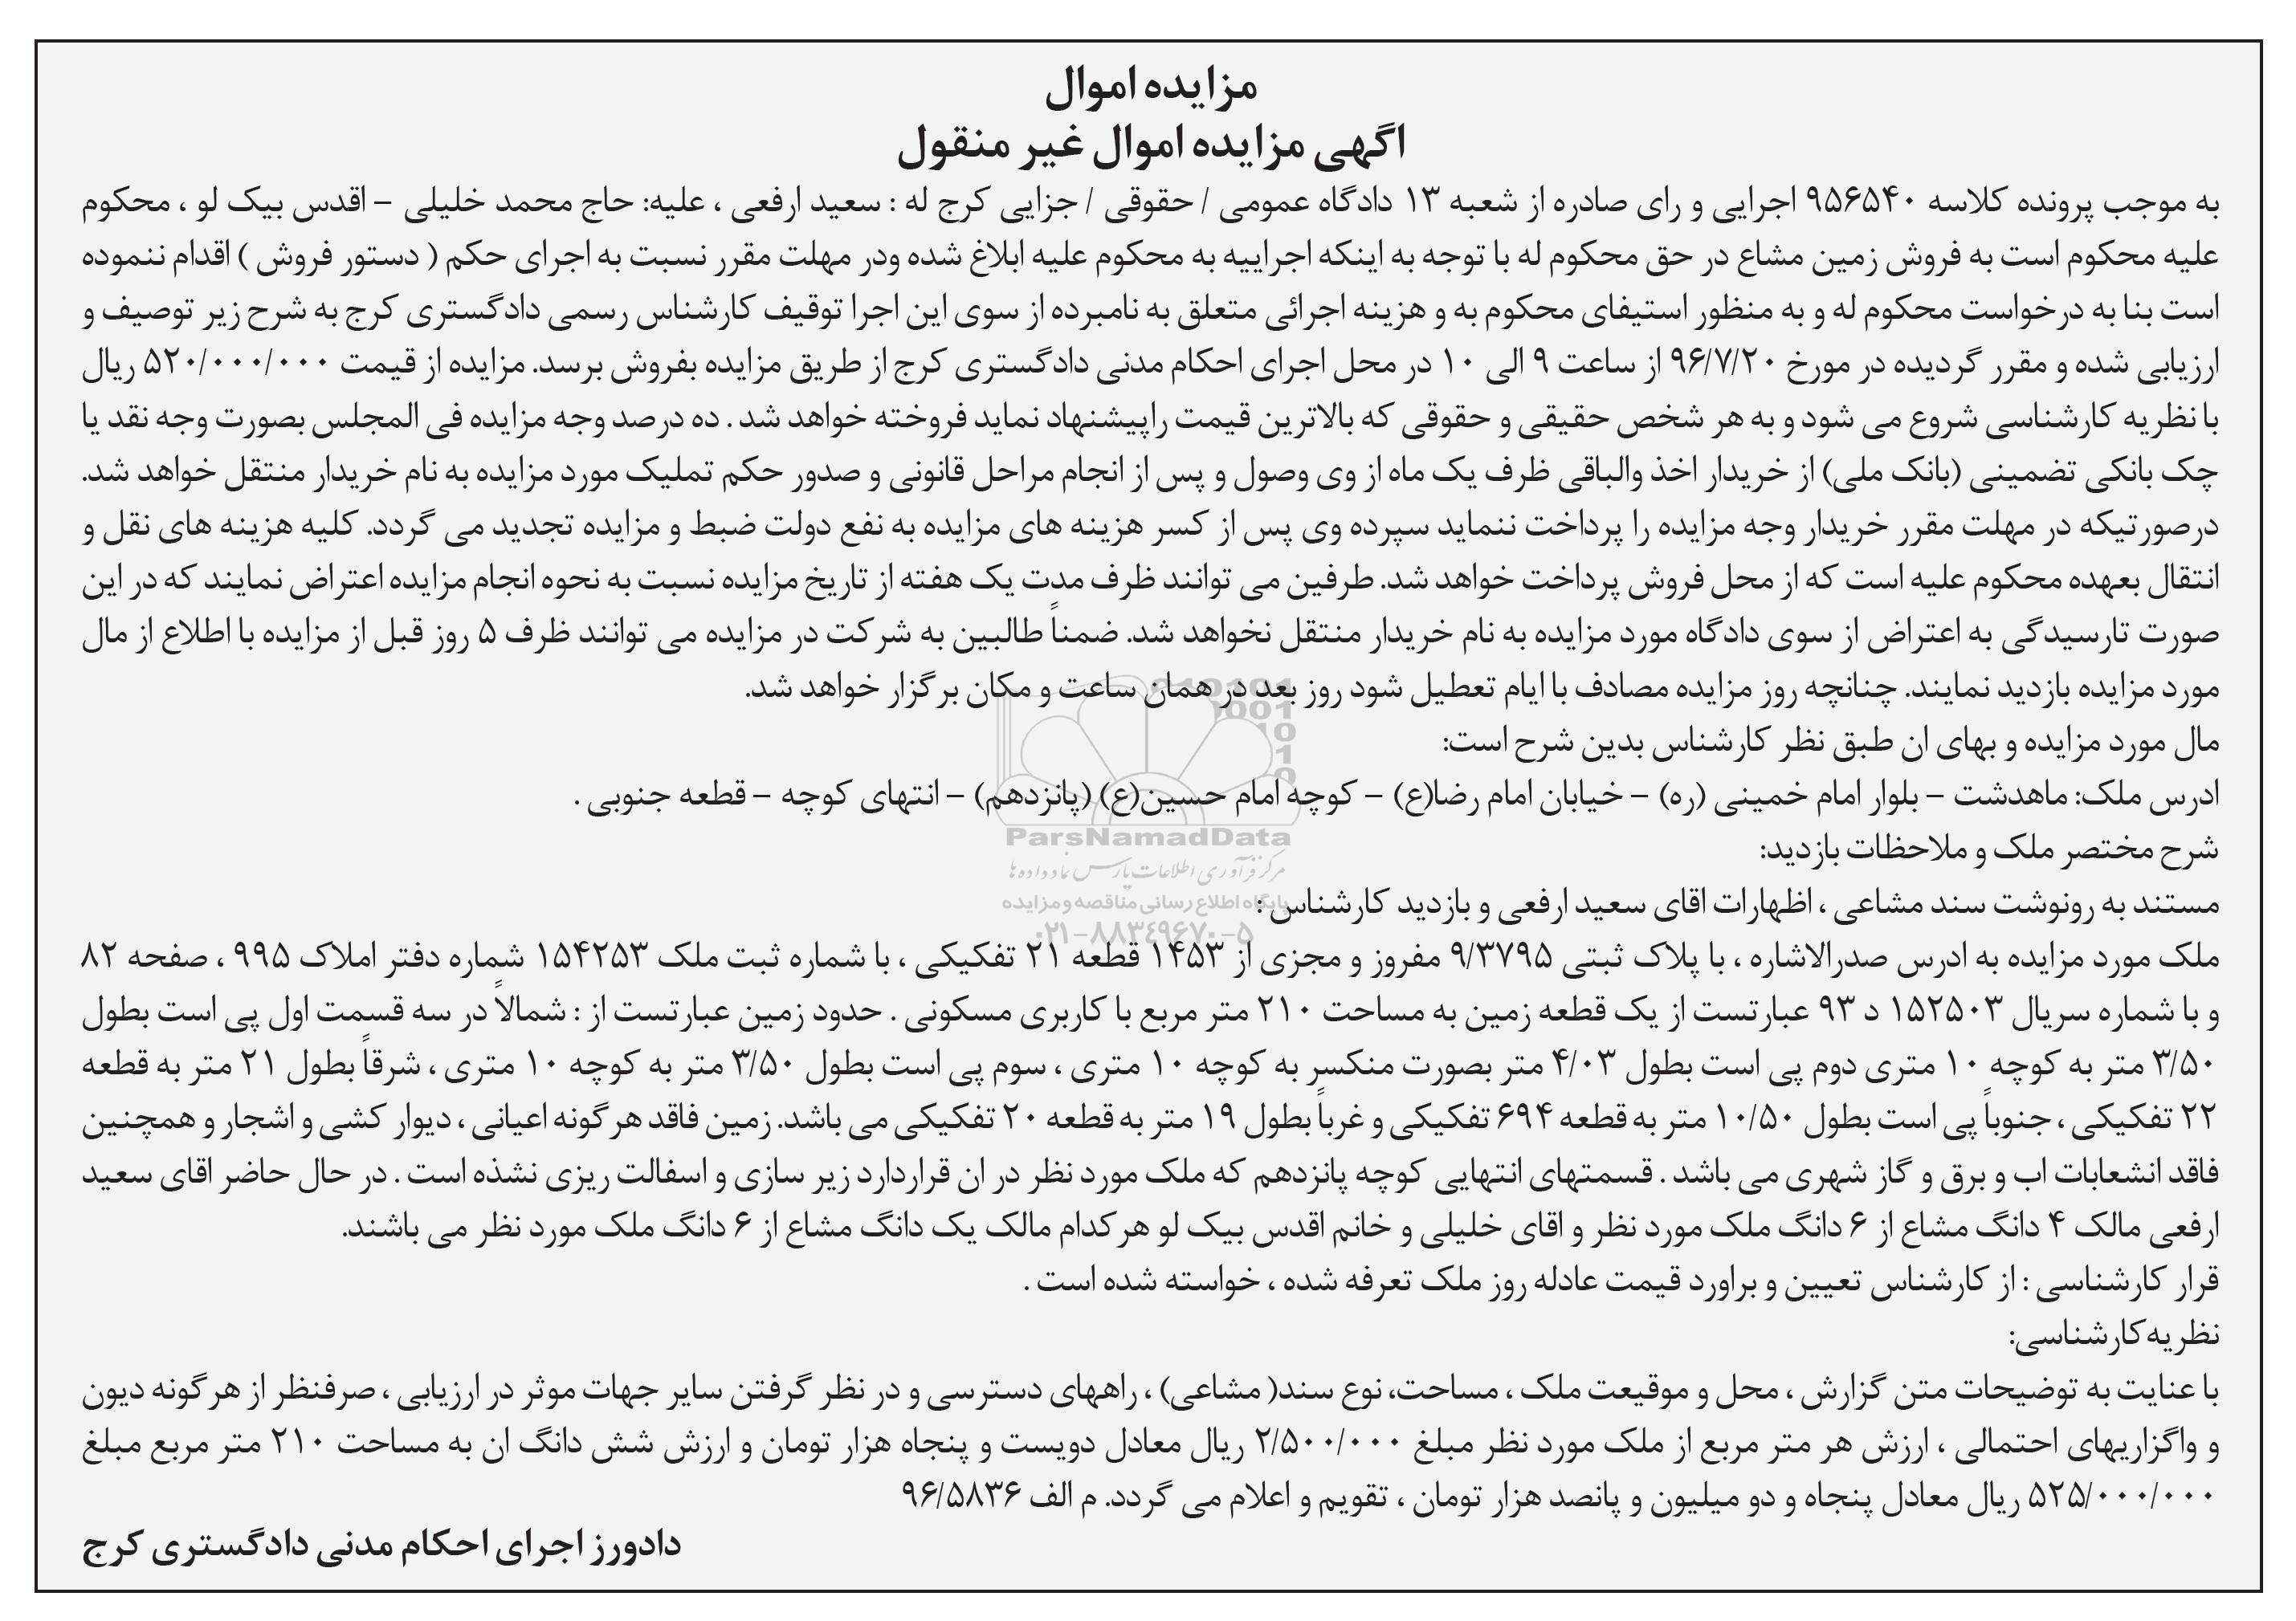 مزایده اموال
اگهی مزایده اموال غیر منقول
به موجب پرونده کلاسه ۹۵۶۵۴۰ اجرایی و رای صادره از شعبه ۱۳ دادگاه عمومی / حقوقی / جزایی کرج له : سعید ارفعی ، علیه: حاج محمد خلیلی – اقدس بیک لو ، محکوم
علیه محکوم است به فروش زمین مشاع در حق محکوم له با توجه به اینکه اجراییه به محکوم علیه ابلاغ شده ودر مهلت مقرر نسبت به اجرای حکم ( دستور فروش ) اقدام ننموده
است بنا به درخواست محکوم له و به منظور استیفای محکوم به و هزینه اجرائی متعلق به نامبرده از سوی این اجرا توقیف کارشناس رسمی دادگستری کرج به شرح زیر توصیف و
ارزیابی شده و مقرر گردیده در مورخ ۹۶/۷/۲۰ از ساعت ۹ الی ۱۰ در محل اجرای احکام مدنی دادگستری کرج از طریق مزایده بفروش برسد. مزایده از قیمت ۵۲۰/۰۰۰/۰۰۰ ریال
با نظریه کارشناسی شروع می شود و به هر شخص حقیقی و حقوقی که بالاترین قیمت راپیشنهاد نماید فروخته خواهد شد . ده درصد وجه مزایده فی المجلس بصورت وجه نقد یا
چک بانکی تضمینی (بانک ملی) از خریدار اخذ والباقی ظرف یک ماه از وی وصول و پس از انجام مراحل قانونی و صدور حکم تملیک مورد مزایده به نام خریدار منتقل خواهد شد.
درصورتیکه در مهلت مقرر خریدار وجه مزایده را پرداخت ننماید سپرده وی پس از کسر هزینه های مزایده به نفع دولت ضبط و مزایده تجدید می گردد. کلیه هزینه های نقل و
انتقال بعهده محکوم علیه است که از محل فروش پرداخت خواهد شد. طرفین می توانند ظرف مدت یک هفته از تاریخ مزایده نسبت به نحوه انجام مزایده اعتراض نمایند که در این
صورت تارسیدگی به اعتراض از سوی دادگاه مورد مزایده به نام خریدار منتقل نخواهد شد. ضمناً طالبین به شرکت در مزایده می توانند ظرف ۵ روز قبل از مزایده با اطلاع از مال
مورد مزایده بازدید نمایند. چنانچه روز مزایده مصادف با ایام تعطیل شود روز بعد در همان ساعت و مکان برگزار خواهد شد.
مال مورد مزایده و بهای ان طبق نظر کارشناس بدین شرح است:
ادرس ملک: ماهدشت – بلوار امام خمینی (ره) – خیابان امام رضا(ع) – کوچه امام حسین(ع) (پانزدهم) – انتهای کوچه – قطعه جنوبی .
ParsNamadData
شرح مختصر ملک و ملاحظات بازدید:
مرکز فرآوری اطلاعات پارس نماد داده ها
مستند به رونوشت سند مشاعی ، اظهارات اقای سعید ارفعی و بازدید کارشناس :
پایگاه اطلاع رسانی مناقصه و مزایده
۰۲۱-۸۸۳۴۹۶۷۰-۵
ملک مورد مزایده به ادرس صدرالاشاره ، با پلاک ثبتی ۹/۳۷۹۵ مفروز و مجزی از ۱۴۵۳ قطعه ۲۱ تفکیکی ، با شماره ثبت ملک ۱۵۴۲۵۳ شماره دفتر املاک ۹۹۵ ، صفحه ۸۲
و با شماره سریال ۱۵۲۵۰۳ د ۹۳ عبارتست از یک قطعه زمین به مساحت ۲۱۰ متر مربع با کاربری مسکونی . حدود زمین عبارتست از : شمالاً در سه قسمت اول پی است بطول
۳/۵۰ متر به کوچه ۱۰ متری دوم پی است بطول ۴/۰۳ متر بصورت منکسر به کوچه ۱۰ متری ، سوم پی است بطول ۳/۵۰ متر به کوچه ۱۰ متری ، شرقاً بطول ۲۱ متر به قطعه
۲۲ تفکیکی ، جنوباً پی است بطول ۱۰/۵۰ متر به قطعه ۶۹۴ تفکیکی و غرباً بطول ۱۹ متر به قطعه ۲۰ تفکیکی می باشد. زمین فاقد هرگونه اعیانی ، دیوار کشی و اشجار و همچنین
فاقد انشعابات اب و برق و گاز شهری می باشد . قسمتهای انتهایی کوچه پانزدهم که ملک مورد نظر در ان قراردارد زیر سازی و اسفالت ریزی نشذه است . در حال حاضر اقای سعید
ارفعی مالک ۴ دانگ مشاع از ۶ دانگ ملک مورد نظر و اقای خلیلی و خانم اقدس بیک لو هرکدام مالک یک دانگ مشاع از ۶ دانگ ملک مورد نظر می باشند.
قرار کارشناسی : از کارشناس تعیین و براورد قیمت عادله روز ملک تعرفه شده ، خواسته شده است .
نظریه‌کارشناسی:
با عنایت به توضیحات متن گزارش ، محل و موقیعت ملک ، مساحت، نوع سند( مشاعی) ، راههای دسترسی و در نظر گرفتن سایر جهات موثر در ارزیابی ، صرفنظر از هرگونه دیون
و واگزاریهای احتمالی ، ارزش هر متر مربع از ملک مورد نظر مبلغ ۲/۵۰۰/۰۰۰ ریال معادل دویست و پنجاه هزار تومان و ارزش شش دانگ ان به مساحت ۲۱۰ متر مربع مبلغ
۵۲۵/۰۰۰/۰۰۰ ریال معادل پنجاه و دو میلیون و پانصد هزار تومان ، تقویم و اعلام می گردد. م الف ۹۶/۵۸۳۶
دادورز اجرای احکام مدنی دادگستری کرج